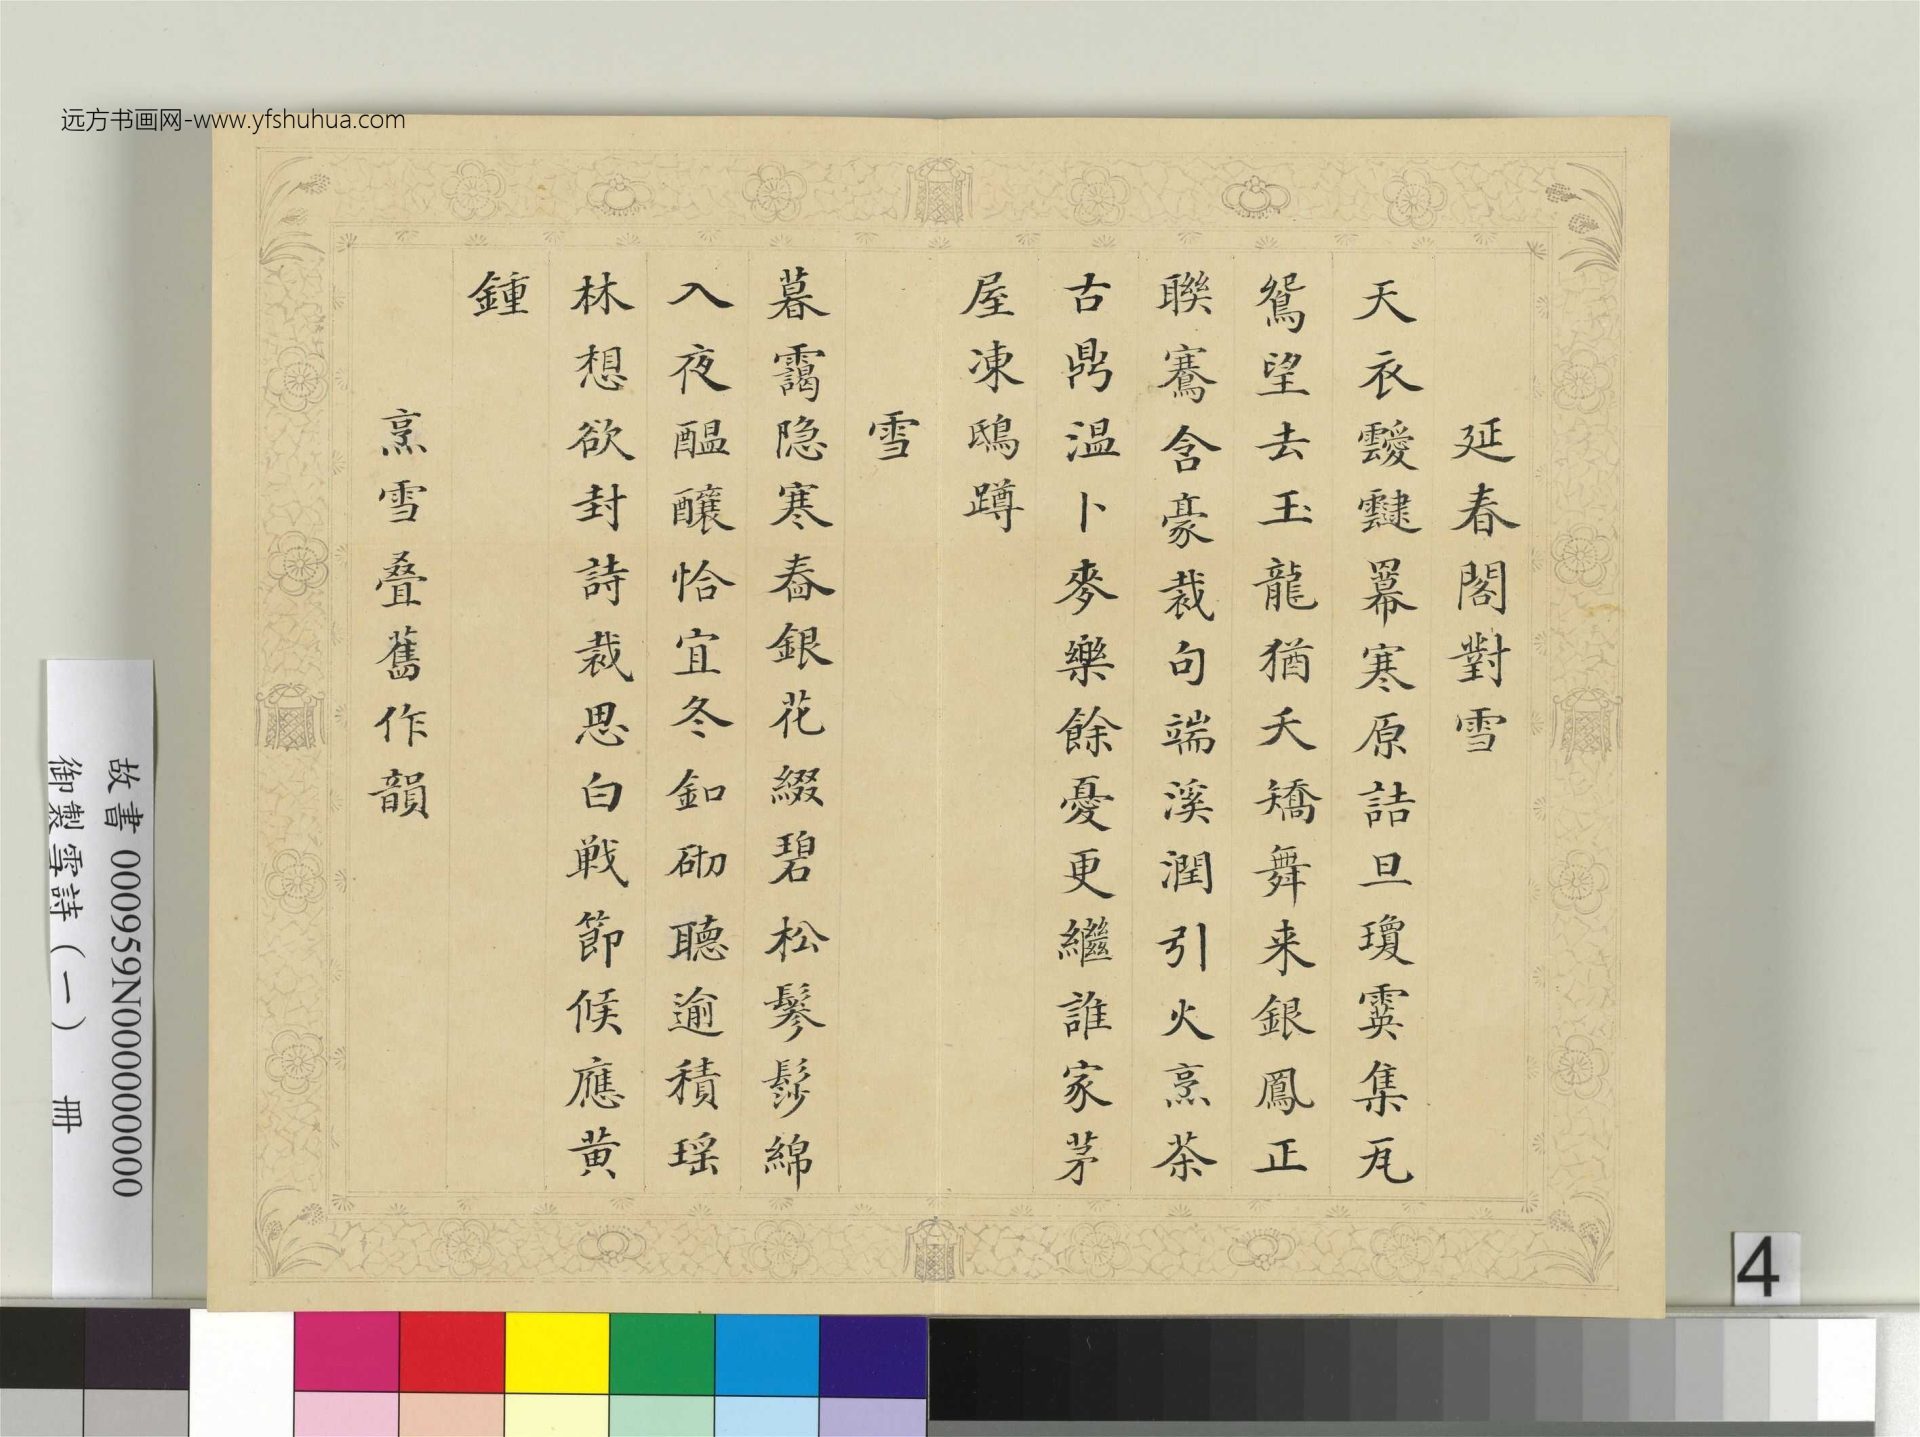 远方书画网-www.yfshuhua.com
延春閣對雪
天衣靉靆羃寒原詰旦瓊霙集瓦
鴛望去玉龍猶夭矯舞来銀鳳正
聯騫含豪裁句端溪潤引火烹茶
古鼎温卜麥樂餘憂更繼誰家茅
屋凍鴟蹲
雪
暮靄隐寒春銀花綴碧松鬖髿綿
入夜醖釀恰宜冬釦砌聴逾積瑶
林想欲封詩裁思白戦節候應黄
鍾
烹雪叠舊作韻
故書 000959N000000000
御製雪詩（一） 冊
4